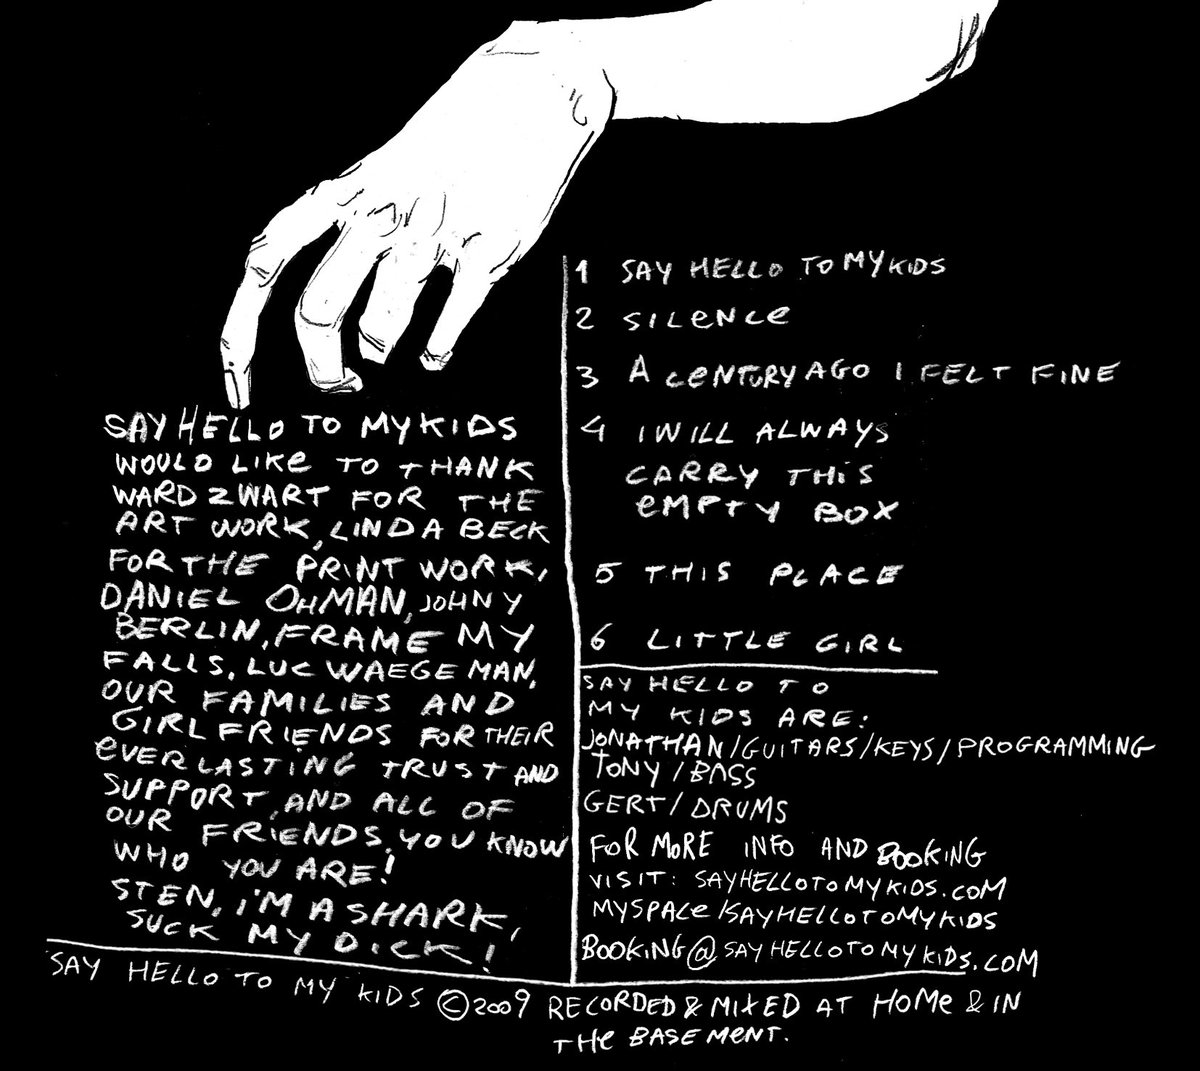 SAY HELLO TO MY KIDS
WOULD LIKE TO THANK
WARD ZWART FOR THE
ART WORK, LINDA BECK
FOR THE PRINT WORK,
DANIEL OHMAN, JOHNY
BERLIN, FRAME MY
FALLS, LUC WAEGEMAN,
OUR FAMILIES AND
GIRLFRIENDS FOR THEIR
EVERLASTING TRUST AND
SUPPORT, AND ALL OF
OUR FRIENDS, YOU KNOW
WHO YOU ARE!
STEN, I'M A SHARK,
SUCK MY DICK!
1 SAY HELLO TO MY KIDS
2 SILENCE
3 A CENTURY AGO I FELT FINE
4 I WILL ALWAYS
CARRY THIS
EMPTY BOX
5 THIS PLACE
6 LITTLE GIRL
SAY HELLO TO
MY KIDS ARE:
JONATHAN/GUITARS/KEYS/PROGRAMMING
TONY/BASS
GERT/DRUMS
FOR MORE INFO AND BOOKING
VISIT: SAYHELLOTOMYKIDS.COM
MYSPACE/SAYHELLOTOMYKIDS
BOOKING@SAYHELLOTOMYKIDS.COM
SAY HELLO TO MY KIDS © 2009 RECORDED & MIXED AT HOME & IN
THE BASEMENT.